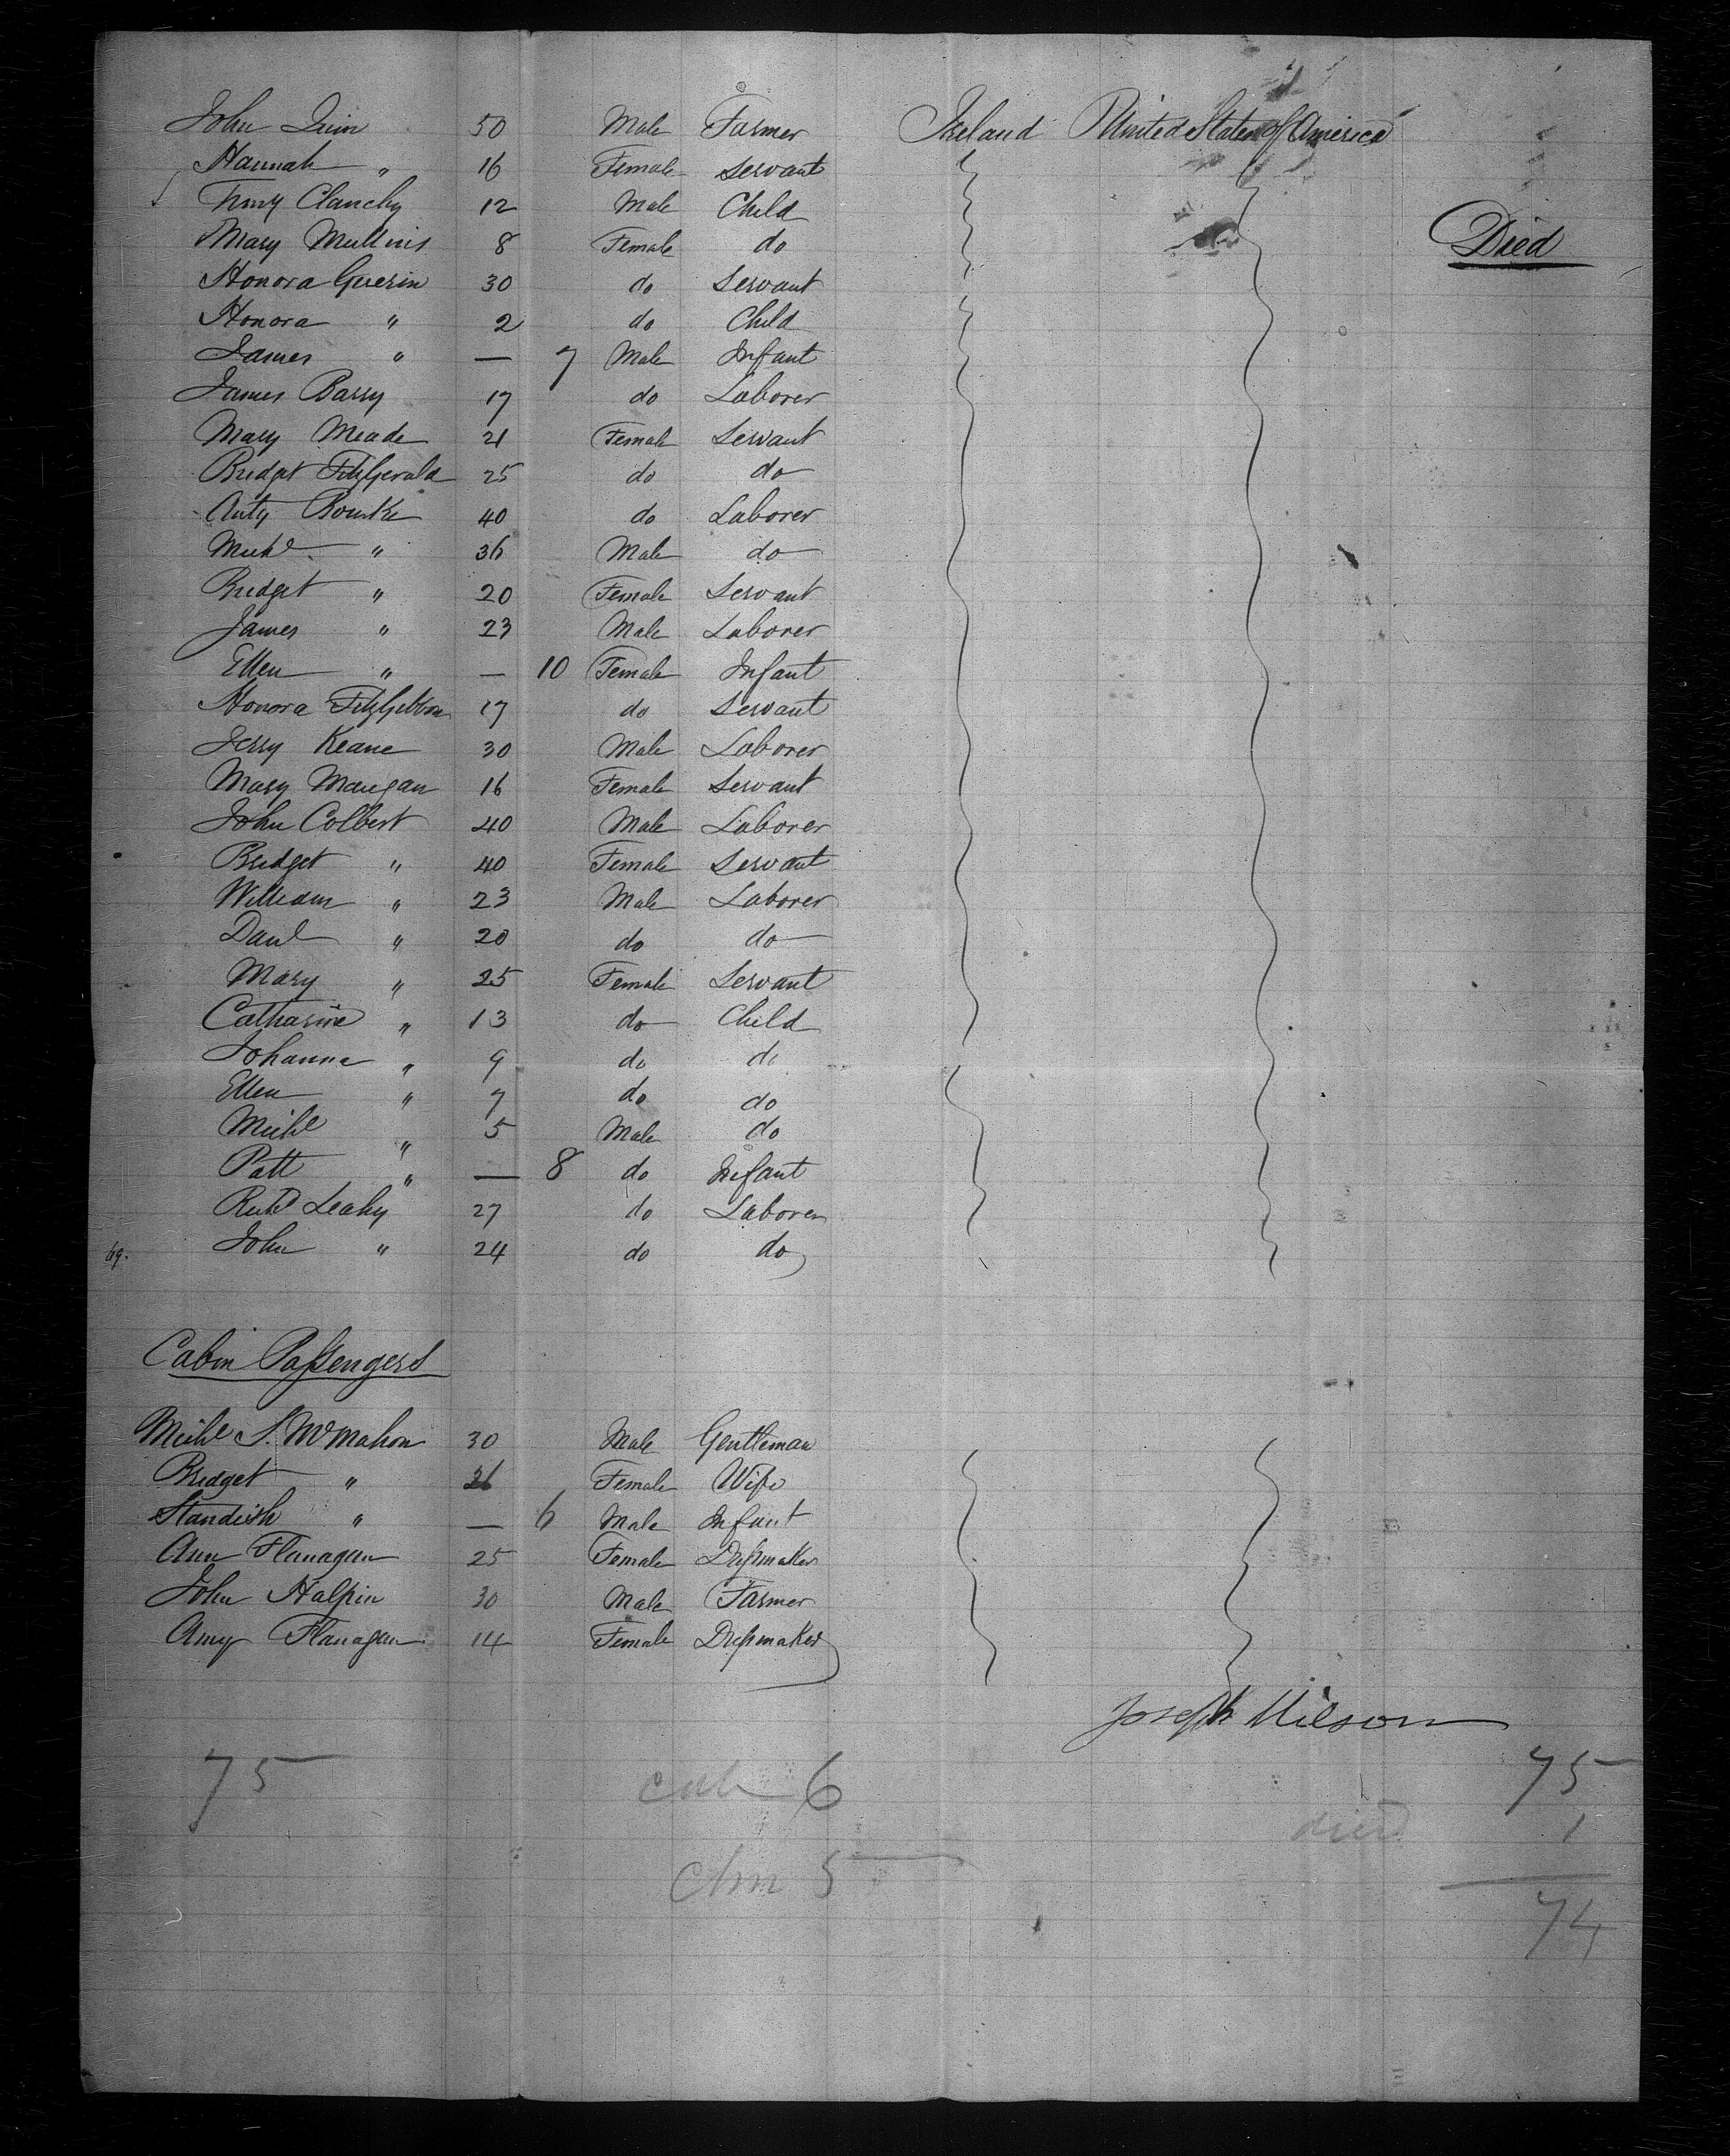 John Quin 50 Male Farmer Ireland United States of America
Hannah " 16 Female Servant
12 Male Child
Mary Mullins 8 Female do Died
Honora Guerin 30 do Servant
Honora " 2 do Child
James " — 7 Male Infant
James Barry 17 do Laborer
Mary Meade 21 Female Servant
Bridget FitzGerald 25 do do
Anty Bourke 40 do Laborer
Michl " 36 Male do
Bridget " 20 Female Servant
James " 23 Male Laborer
Ellen " — 10 Female Infant
Honora FitzGibbon 17 do Servant
Jerry Keane 30 Male Laborer
Mary Mangan 16 Female Servant
John Colbert 40 Male Laborer
Bridget " 40 Female Servant
William " 23 Male Laborer
Danl " 20 do do
Mary " 25 Female Servant
Catharine " 13 do Child
Johanna " 9 do do
Ellen " 7 do do
Michl " 5 Male do
Patt " — 8 do Infant
Richd Leahy 27 do Laborer
69. John " 24 do do
Cabin Passengers
Michl S. McMahon 30 Male Gentleman
Bridget " 26 Female Wife
Standish " — 6 Male Infant
Ann Flanagan 25 Female Dressmaker
John Halpin 30 Male Farmer
Amy Flanagan 14 Female Dressmaker
Joseph Wilson
75 cab 6 75
died 1
5
74